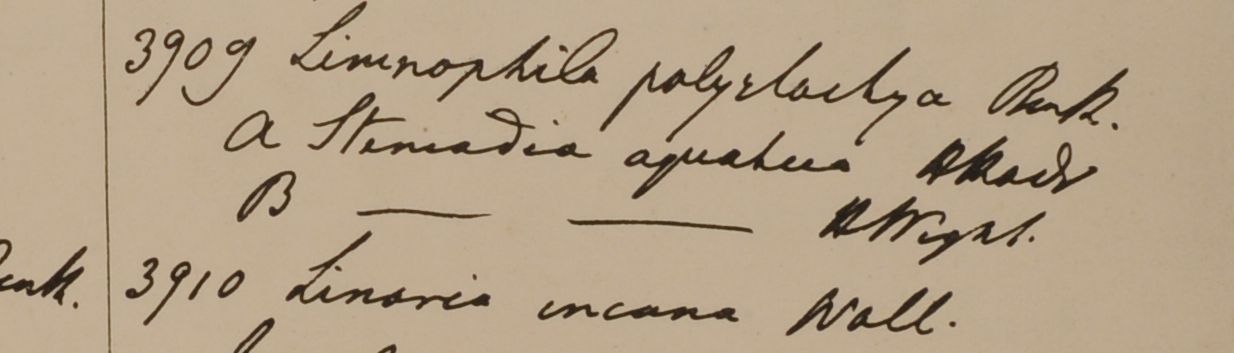 3909 Limnophila polystachya Benth.
A Stemodia aquatica HMadr
B — — HWight.
3910 Linaria incana Wall.